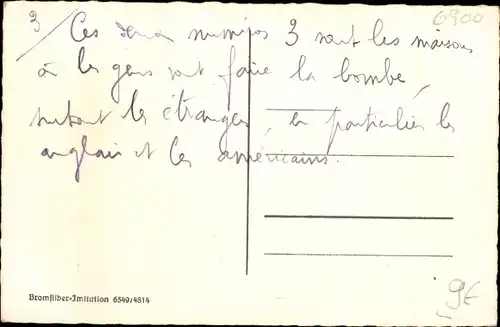 3
6900
Ces deux numéros 3 sont les maisons
où les gens vont faire la bombe,
surtout les étrangers, en particulier les
anglais et les américains.
Bromsilber-Imitation 6549/4814
9€